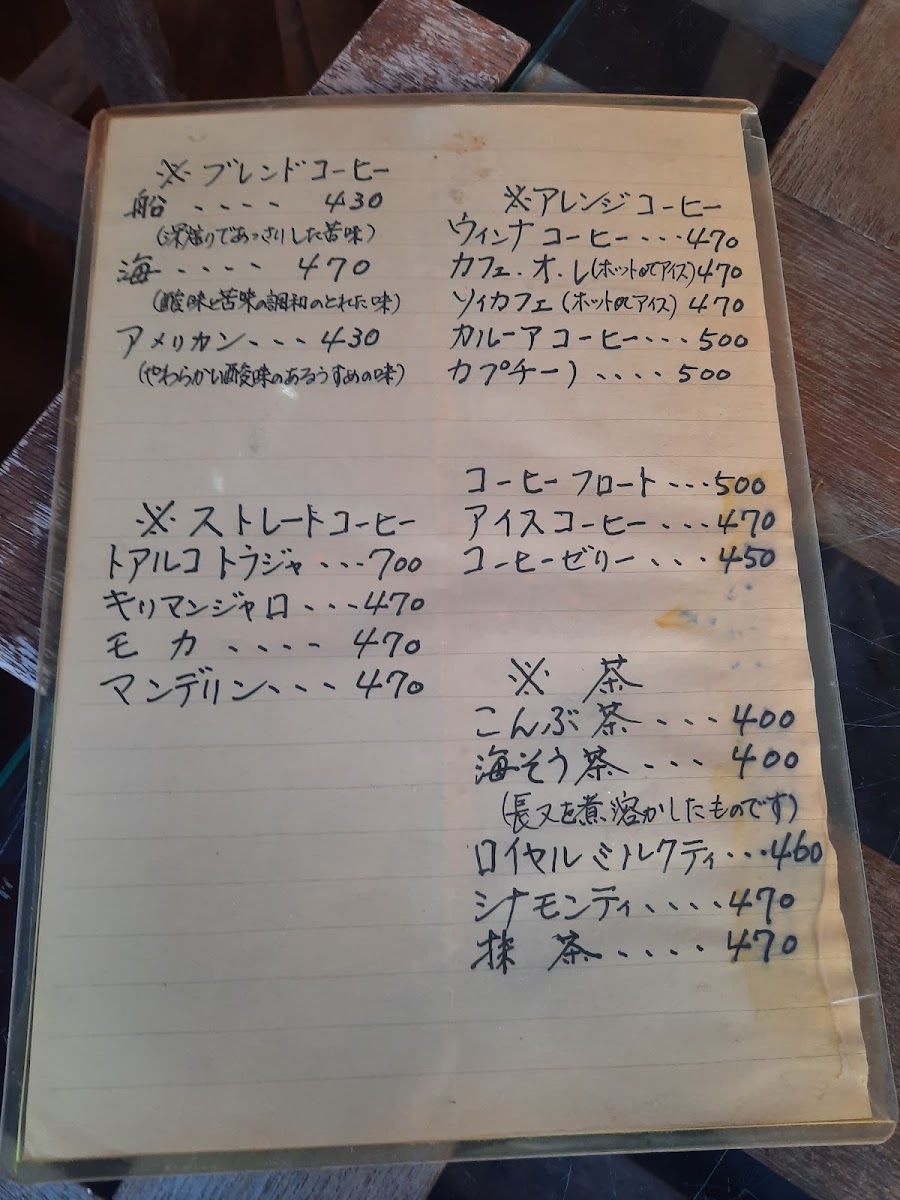 ※ ブレンドコーヒー
船 ‥‥ 430
(深煎りであっさりした苦味)
海 ‥‥ 470
(酸味と苦味の調和のとれた味)
アメリカン ‥‥ 430
(やわらかい酸味のあるうすめの味)
※ ストレートコーヒー
トアルコ トラジャ ... 700
キリマンジャロ ... 470
モカ .... 470
マンデリン .... 470
※アレンジコーヒー
ウィンナコーヒー ... 470
カフェ・オ・レ(ホットorアイス) 470
ソイカフェ(ホットorアイス) 470
カルーアコーヒー ... 500
カプチーノ .... 500
コーヒーフロート ... 500
アイスコーヒー ... 470
コーヒーゼリー ... 450
※ 茶
こんぶ茶 .... 400
海そう茶 ... 400
(長又を煮溶かしたものです)
ロイヤルミルクティ ... 460
シナモンティ .... 470
抹茶 ..... 470